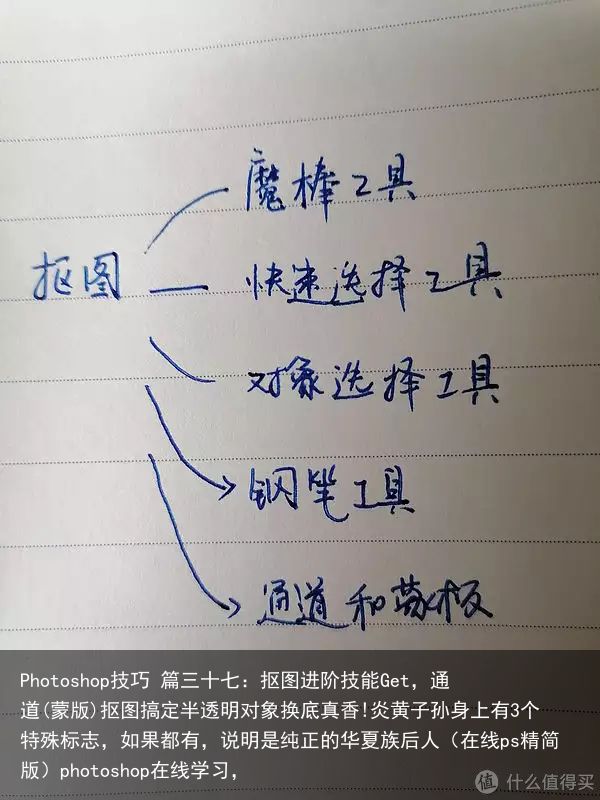 魔棒工具
抠图
快速选择工具
对象选择工具
钢笔工具
通道和蒙板
Photoshop技巧 篇三十七：抠图进阶技能Get，通
道(蒙版)抠图搞定半透明对象换底真香!炎黄子孙身上有3个
特殊标志，如果都有，说明是纯正的华夏族后人（在线ps精简
版）photoshop在线学习，
值 什么值得买